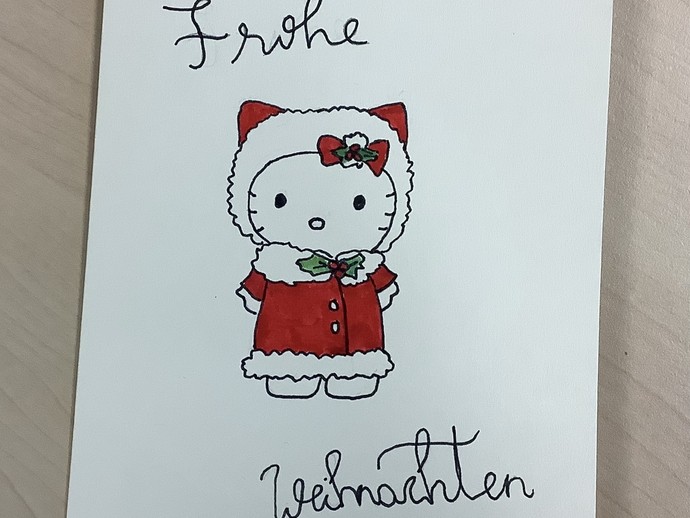 Frohe
Weihnachten